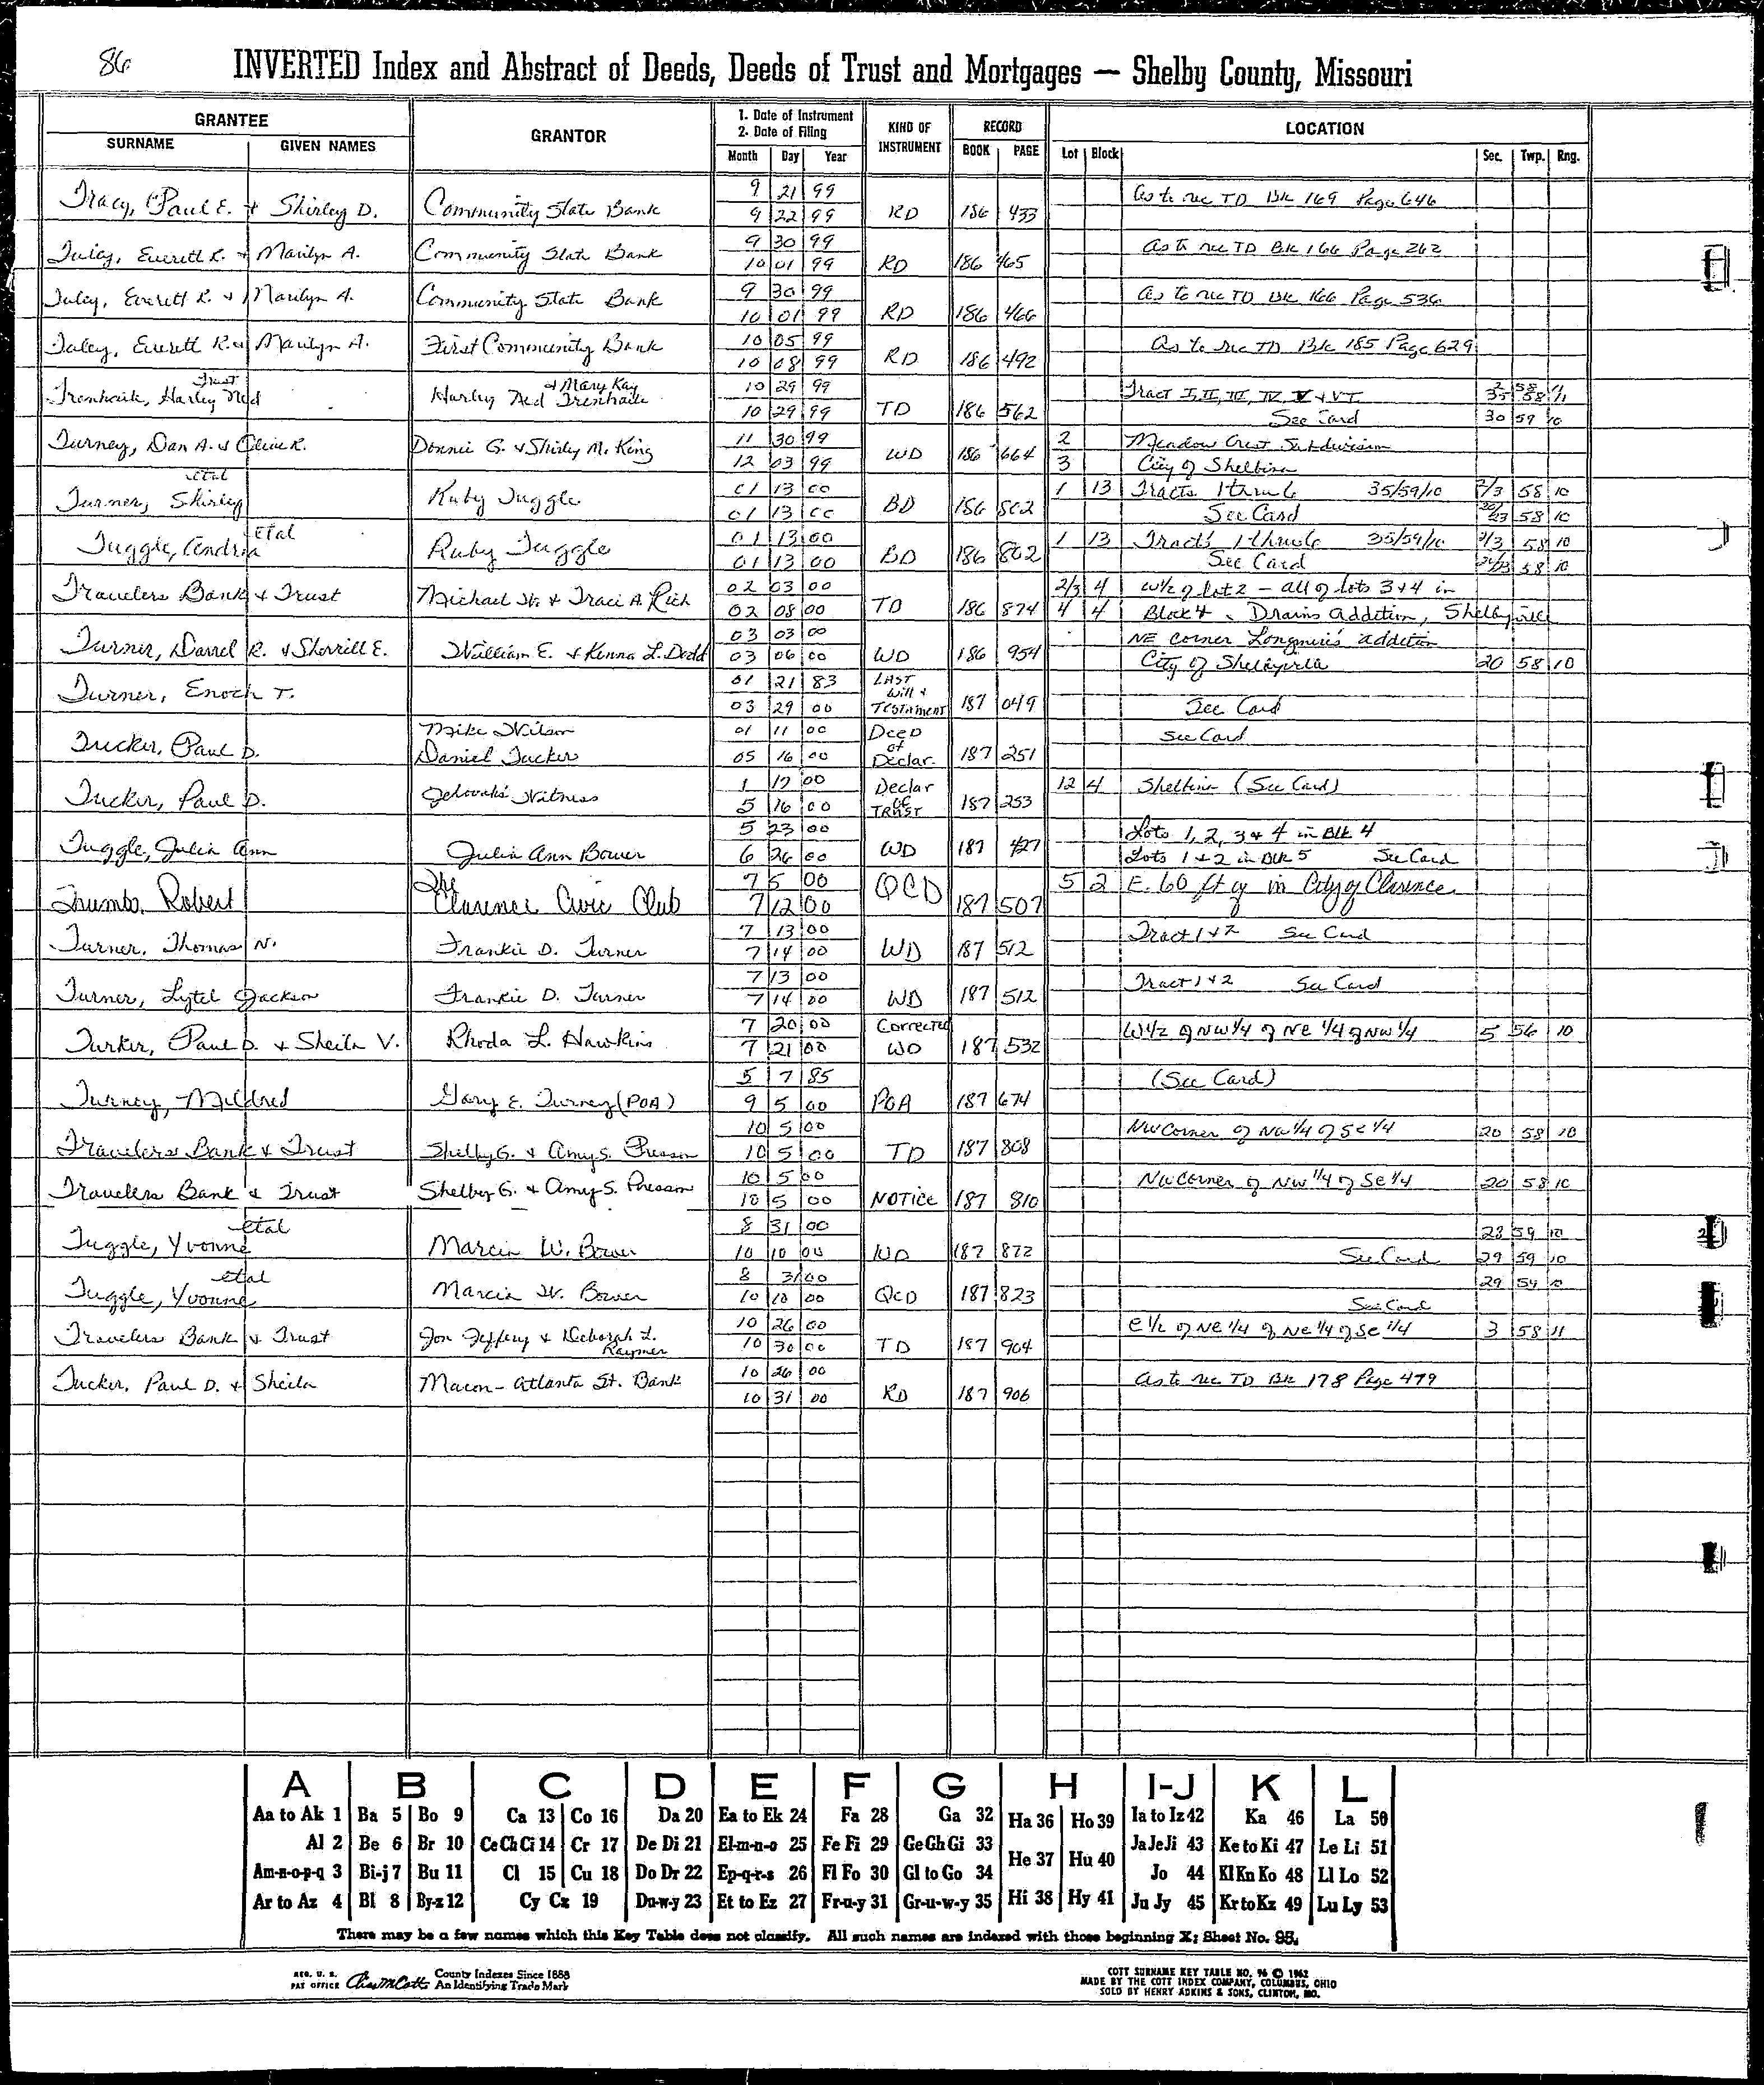 86
INVERTED Index and Abstract of Deeds, Deeds of Trust and Mortgages — Shelby County, Missouri
GRANTEE
SURNAME GIVEN NAMES
GRANTOR
1. Date of Instrument
2. Date of Filing
Month Day Year
KIND OF INSTRUMENT
RECORD
BOOK PAGE
LOCATION
Lot Block Sec. Twp. Rng.
Tracy, Paul E. & Shirley D. Community State Bank 9 21 99 As to rec TD Bk 169 Page 646
9 22 99 RD 186 433
Everett R. & Marilyn A. Community State Bank 9 30 99 As to rec TD Bk 166 Page 262
10 01 99 RD 186 465
Everett R. & Marilyn A. Community State Bank 9 30 99 As to rec TD Bk 166 Page 536
10 01 99 RD 186 466
Everett R. & Marilyn A. First Community Bank 10 05 99 As to rec TD Bk 185 Page 629
10 08 99 RD 186 492
Trust & Mary Kay 10 29 99 Tract I, II, III, IV V & VI
Harley Ned Harley Ned 10 29 99 TD 186 562 See Card 30 59 10
Turney, Dan A. & Olive R. Donnie G. & Shirley M. King 11 30 99 2 Meadow Crest Subdivision
12 03 99 WD 186 664 3 City of Shelbina
etal
Turner, Shirley Ruby Tuggle 01 13 00 1 13 Tracts 1 thru 6 35/59/10 2/3 58 10
01 13 00 BD 186 802 See Card 58 10
Tuggle, Andria etal Ruby Tuggle 01 13 00 1 13 Tracts 1 thru 6 35/59/10 2/3 58 10
01 13 00 BD 186 802 See Card 58 10
Travelers Bank & Trust Michael W. & Traci A. Rich 02 03 00 2/3 4 W½ of lot 2 - all of lots 3 & 4 in
02 08 00 TD 186 874 4 4 Block 4 Drains Addition, Shelbyville
Turner, Darrel R. & Sherrill E. William E. & Kenna L. Dodd 03 03 00 NE corner Longmire's addition
03 06 00 WD 186 954 City of Shelbyville 20 58 10
Turner, Enoch T. 01 21 83 LAST Will & Testament
03 29 00 187 049 See Card
Tucker, Paul D. Mike Wilson 01 11 00 Deed of Declar. See Card
Daniel Tucker 05 16 00 187 251
Tucker, Paul D. Jehovah's Witness 1 17 00 Declar of TRUST 12 4 Shelbina (See Card)
5 16 00 187 253
Tuggle, Julia Ann Julia Ann Bower 5 23 00 Lots 1, 2, 3 & 4 in Blk 4
6 26 00 WD 187 427 Lots 1 & 2 in Blk 5 See Card
Trumbo, Robert The Clarence Civic Club 7 5 00 QCD 5 2 E. 60 ft of in City of Clarence
7 12 00 187 507
Turner, Thomas N. Frankie D. Turner 7 13 00 Tract 1 & 2 See Card
7 14 00 WD 187 512
Turner, Lytel Jackson Frankie D. Turner 7 13 00 Tract 1 & 2 See Card
7 14 00 WD 187 512
Paul D. & Sheila V. Rhoda L. Hawkins 7 20 00 Corrected W½ of NW 1/4 of NE 1/4 of NW 1/4 5 56 10
7 21 00 WD 187 532
Turney, Mildred Gary E. Turney (POA) 5 7 85 (See Card)
9 5 00 POA 187 674
Travelers Bank & Trust Shelby G. & Amy S. Presson 10 5 00 NW Corner of NW 1/4 of SE 1/4 20 58 10
10 5 00 TD 187 808
Travelers Bank & Trust Shelby G. & Amy S. Presson 10 5 00 NW Corner of NW 1/4 of SE 1/4 20 58 10
10 5 00 NOTICE 187 810
Tuggle, Yvonne etal Marcia W. Bower 8 31 00 59 10
10 10 00 WD 187 822 See Card 29 59 10
Tuggle, Yvonne etal Marcia W. Bower 8 31 00 29 59 10
10 10 00 QCD 187 823 See Card
Travelers Bank & Trust Jon Jeffery & Deborah L. Raymer 10 26 00 E ½ of NE 1/4 of NE 1/4 of SE 1/4 3 58 11
10 30 00 TD 187 904
Tucker, Paul D. & Sheila Macon-Atlanta St. Bank 10 26 00 As to rec TD Bk 178 Page 479
10 31 00 RD 187 906
A B C D E F G H I-J K L
Aa to Ak 1 Ba 5 Bo 9 Ca 13 Co 16 Da 20 Ea to Ek 24 Fa 28 Ga 32 Ha 36 Ho 39 Ia to Iz 42 Ka 46 La 50
Al 2 Be 6 Br 10 Ce Ch Ci 14 Cr 17 De Di 21 El-m-n-o 25 Fe Fi 29 Ge Gh Gi 33 He 37 Hu 40 Ja Je Ji 43 Ke to Ki 47 Le Li 51
Am-n-o-p-q 3 Bi-j 7 Bu 11 Cl 15 Cu 18 Do Dr 22 Ep-q-r-s 26 Fl Fo 30 Gl to Go 34 Jo 44 Kl Kn Ko 48 Ll Lo 52
Ar to Az 4 Bl 8 By-z 12 Cy Cz 19 Du-w-y 23 Et to Ez 27 Fr-u-y 31 Gr-u-w-y 35 Hi 38 Hy 41 Ju Jy 45 Kr to Kz 49 Lu Ly 53
There may be a few names which this Key Table does not classify. All such names are indexed with those beginning X; Sheet No. 95.
REG. U. S. PAT OFFICE County Indexes Since 1888
An Identifying Trade Mark
COTT SURNAME KEY TABLE NO. 96 © 1962
MADE BY THE COTT INDEX COMPANY, COLUMBUS, OHIO
SOLD BY HENRY ADKINS & SONS, CLINTON, MO.